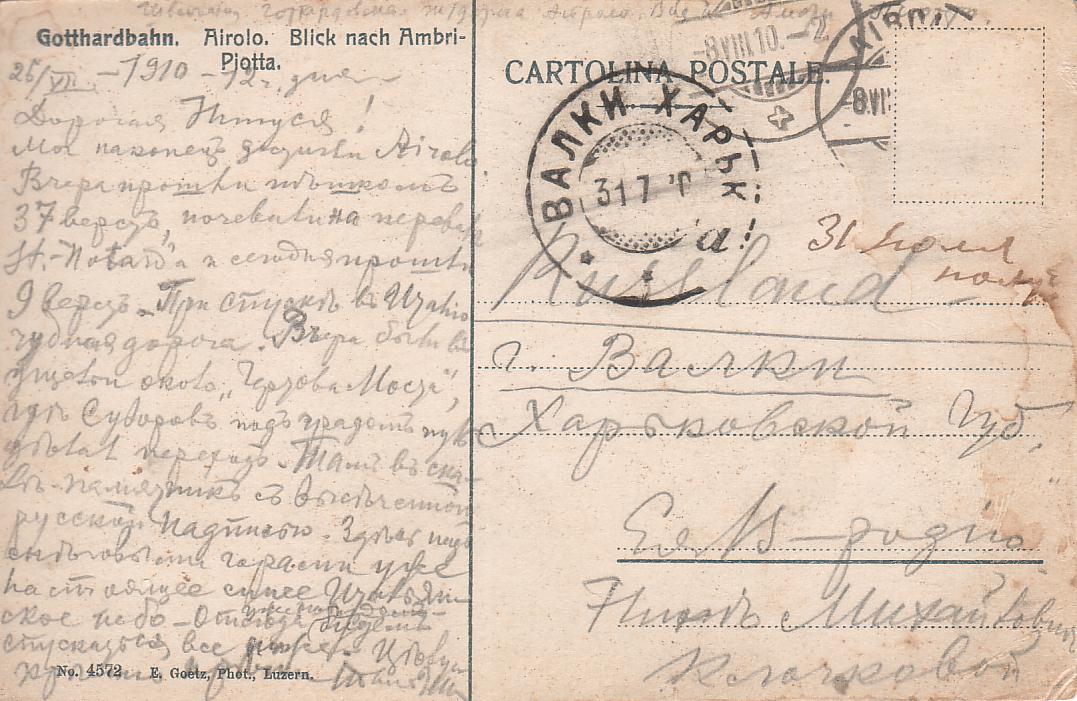 Gotthardbahn. Airolo. Blick nach Ambri-
Piotta.
25/VII – 1910 – 12 ч. дня
Дорогая Нинуся!
Мы наконецъ достигли Airolo
Вчера прошли пѣшкомъ
37 верстъ, ночевали на перевалѣ
и сегодня прошли
9 верстъ. При спускѣ в Италію
чудная дорога. Вчера были въ
ущельи около „Чертова Моста",
гдѣ Суворовъ подъ градомъ пуль
дѣлал переходъ. Тамъ въ ска-
лѣ памятникъ съ высѣченной
русской надписью. Здѣсь надъ
снѣговыми горами уже
настоящее синее Итальян-
ское небо. Отсюда будемъ
спускаться все ниже. Цѣлую
крѣпко
No. 4572 E. Goetz, Phot., Luzern.
CARTOLINA POSTALE.
-8VIII10.-
AIROLO
-8VII
ВАЛКИ ХАРЬК.
31 7 10
а
31 июля
получ
Russland
г. Валки
Харьковской Губ.
Ея В-родію
Нинѣ Михайловнѣ
Клочковой